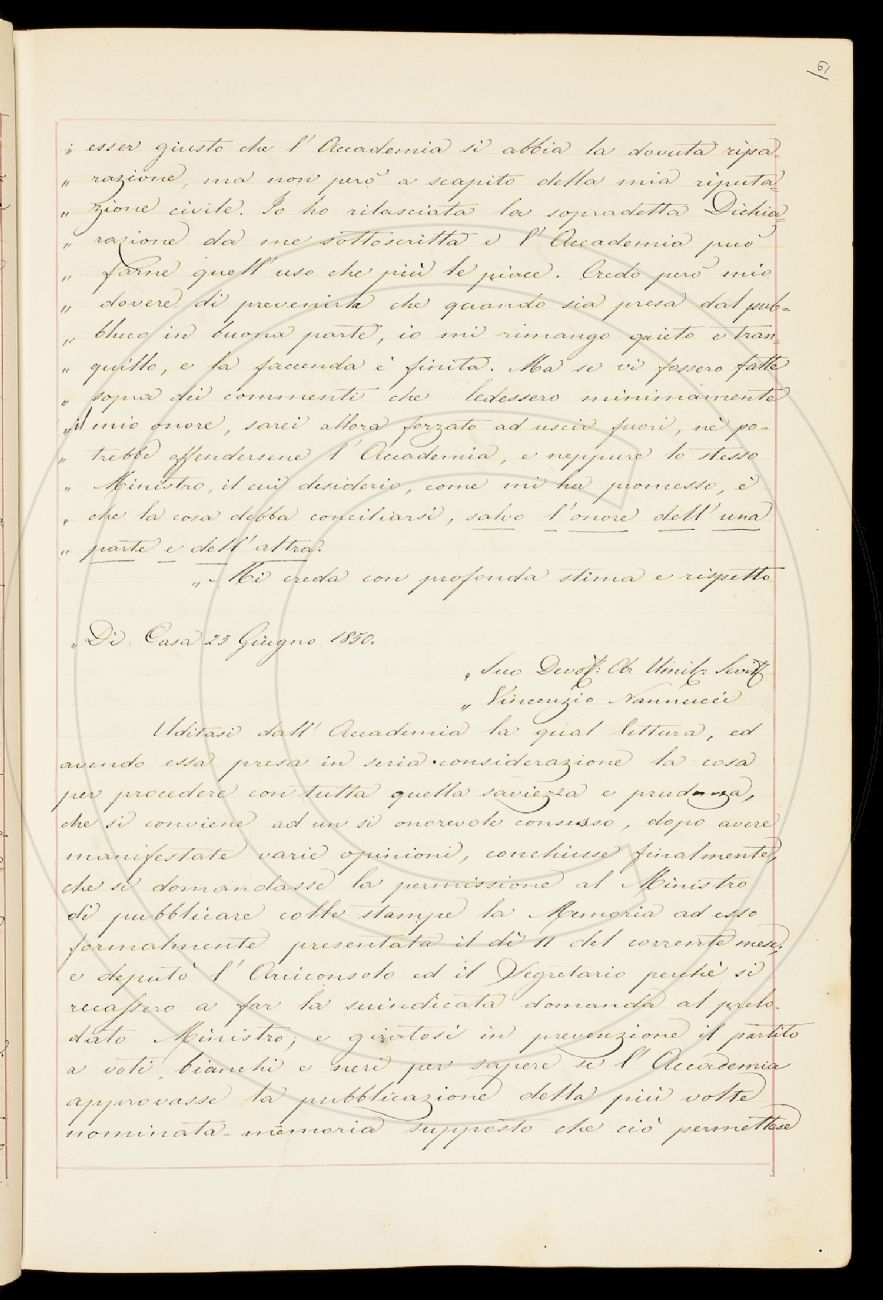 61
„ esser giusto che l'Accademia si abbia la dovuta ripa-
„ razione, ma non però a scapito della mia riputa-
„ zione civile. Io ho rilasciata la sopradetta Dichia-
„ razione da me sottoscritta e l'Accademia può
„ farne quell'uso che più le piace. Credo però mio
„ dovere di prevenirla che quando sia presa dal pub-
„ blico in buona parte, io mi rimango quieto e tran-
„ quillo, e la faccenda è finita. Ma se vi fossero fatte
„ sopra dei commenti che ledessero minimamente
„ il mio onore, sarei allora forzato ad uscir fuori, nè po-
„ trebbe offendersene l'Accademia, e neppure lo stesso
„ Ministro, il cui desiderio, come mi ha promesso, è
„ che la cosa debba conciliarsi, salvo l'onore dell'una
„ parte e dell'altra.
„ Mi creda con profonda stima e rispetto
„ Di Casa 25 Giugno 1850.
„ Suo Devot: Ob: Umil: Servit
„ Vincenzio Nannucci
Uditasi dall'Accademia la qual lettura, ed
avendo essa presa in seria considerazione la cosa
per procedere con tutta quella saviezza e prudenza,
che si conviene ad un sì onorevole consesso, dopo avere
manifestate varie opinioni, conchiuse finalmente,
che si domandasse la permissione al Ministro
di pubblicare colle stampe la Memoria ad esso
formalmente presentata il dì 11 del corrente mese;
e deputò l'Arciconsolo ed il Segretario perchè si
recassero a far la suindicata domanda al prelo-
dato Ministro; e giratosi in prevenzione il partito
a voti bianchi e neri per sapere se l'Accademia
approvasse la pubblicazione della più volte
nominata memoria supposto che ciò permettesse